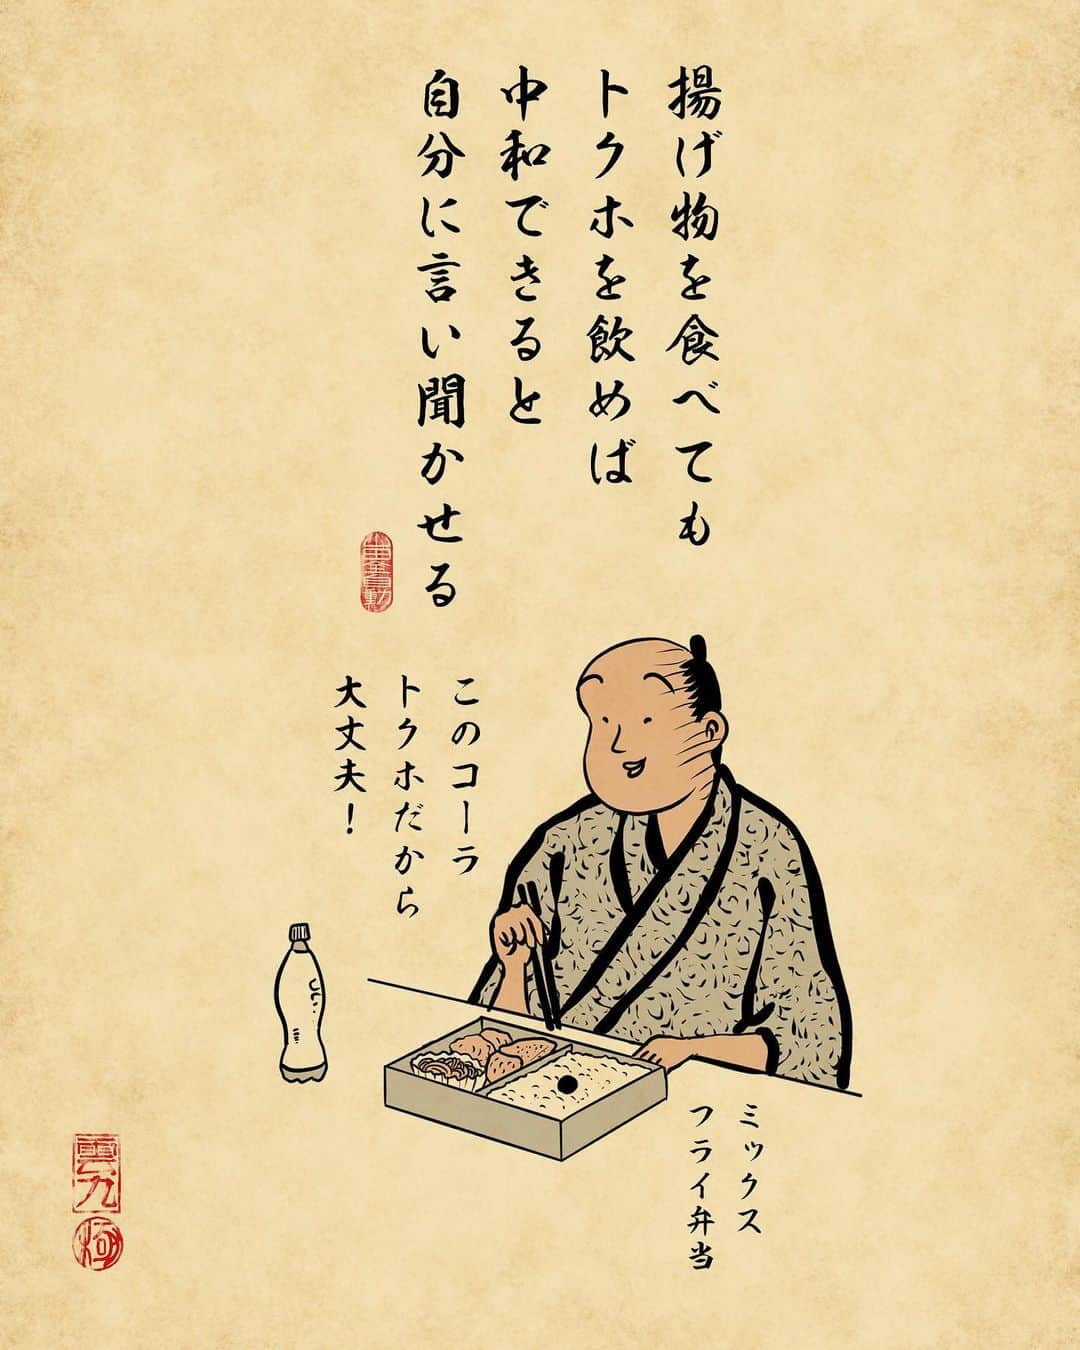 揚げ物を食べても
トクホを飲めば
中和できると
自分に言い聞かせる
このコーラ
トクホだから
大丈夫！
ミックス
フライ弁当